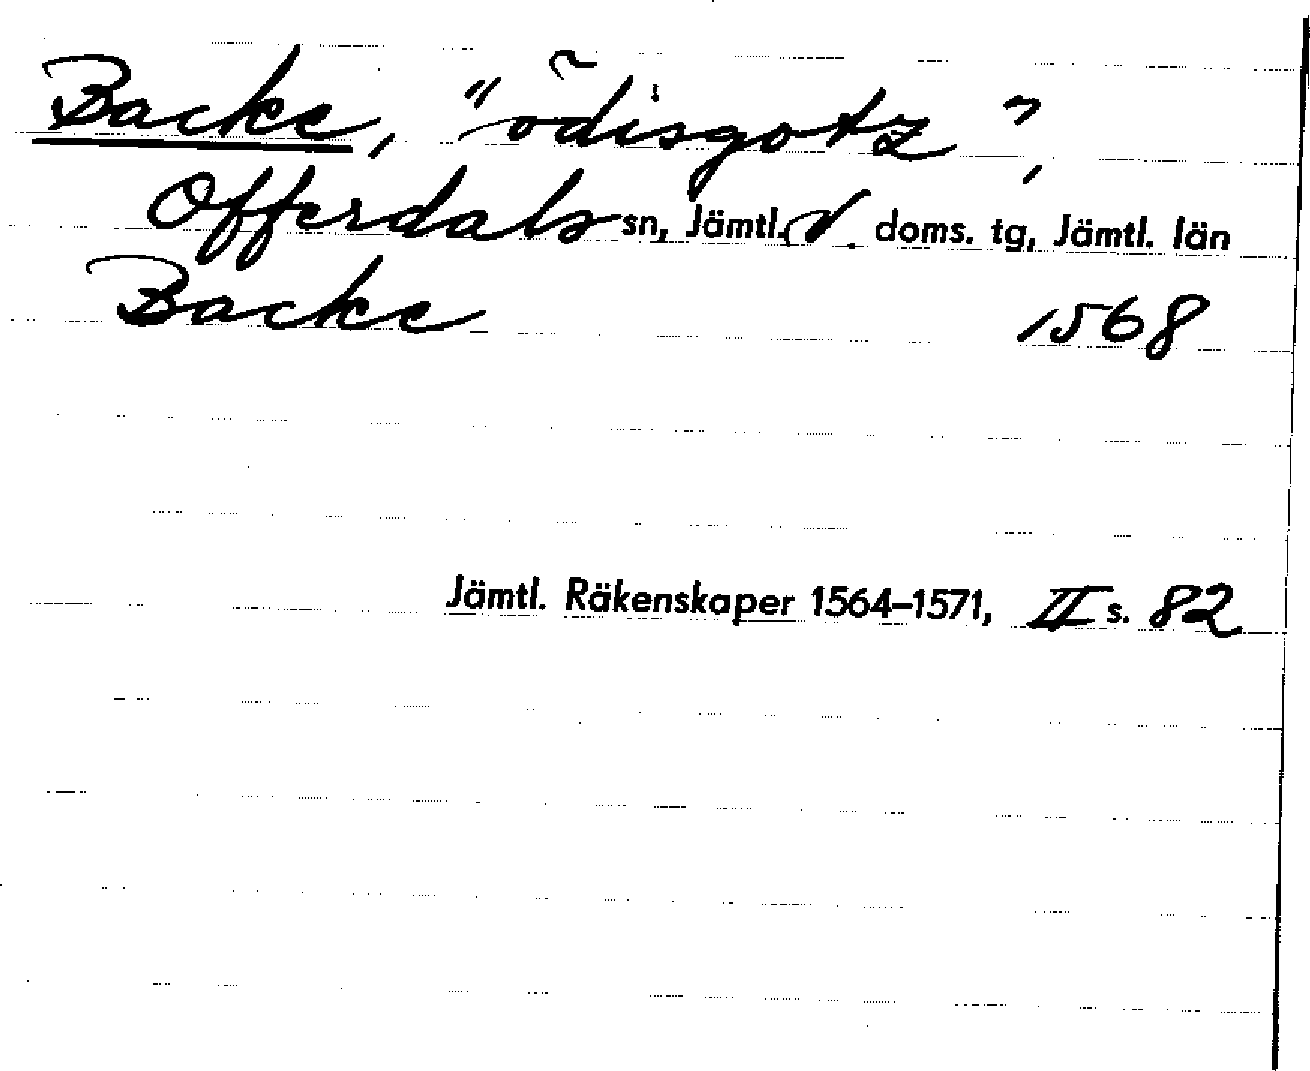 Backe, "ödisgotz",
Offerdals sn, Jämtl. V. doms. tg, Jämtl. län
Backe 1568
Jämtl. Räkenskaper 1564–1571, II s. 82